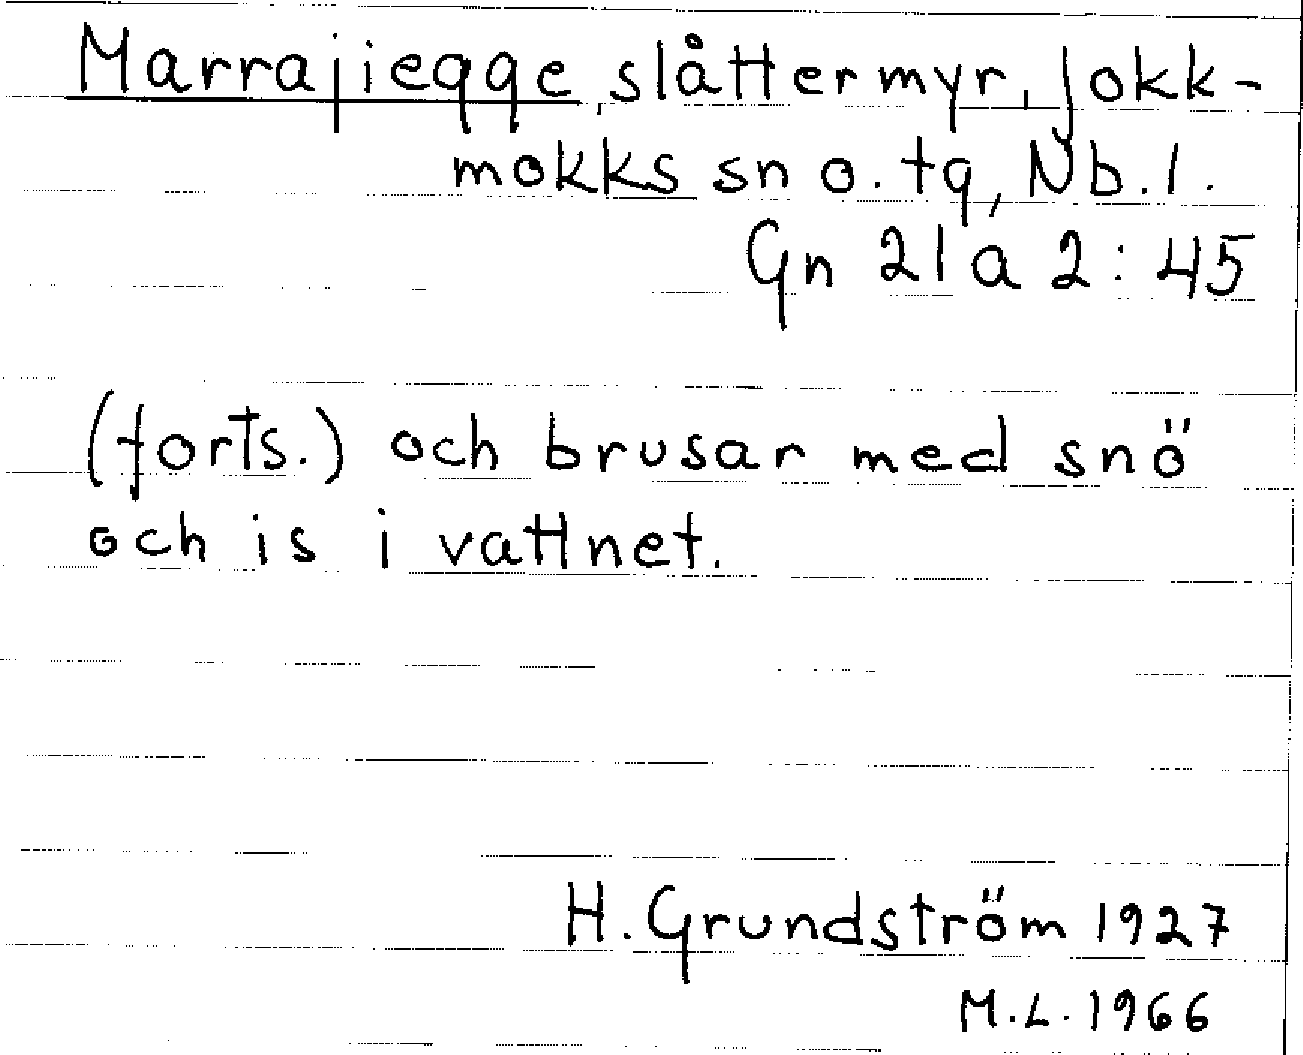 Marrajiegge, slåttermyr, Jokk-
mokks sn o. tg, Nb.l.
Gn 21 a 2:45
(forts.) och brusar med snö
och is i vattnet.
H. Grundström 1927
M.L. 1966